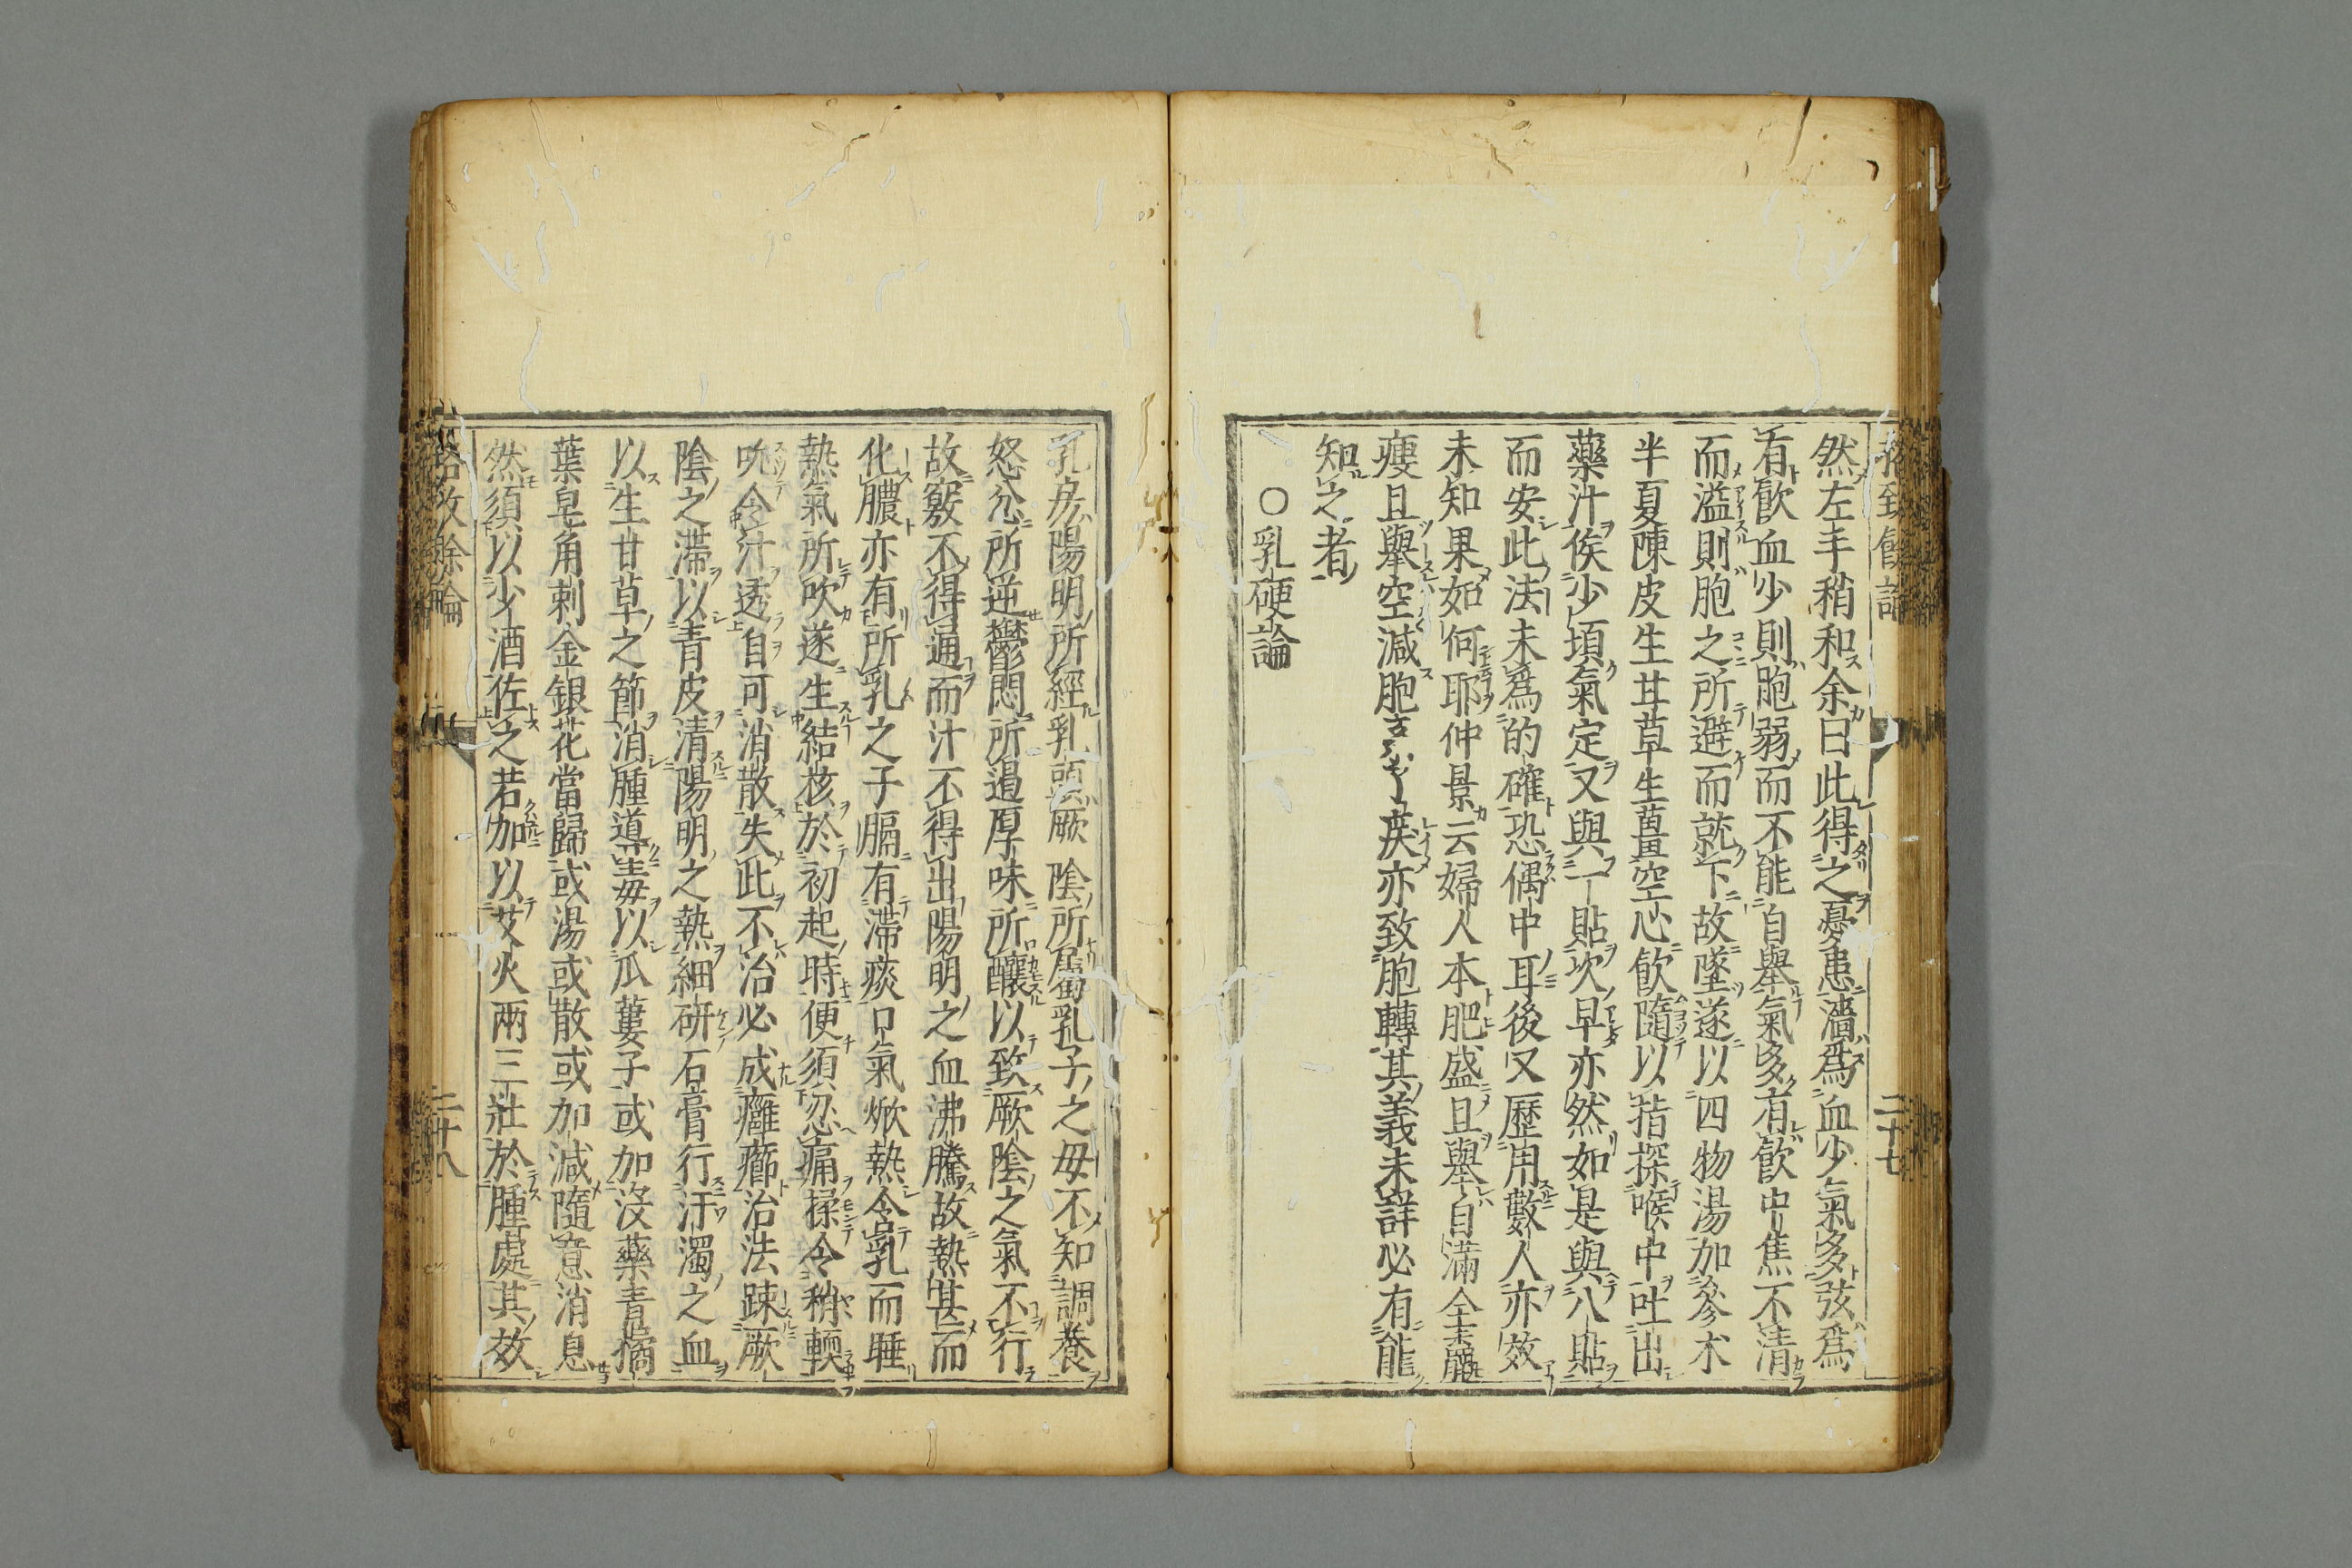 然左手稍和余曰此得之憂患濇爲血少氣多弦爲
有飮血少則胞弱而不能自舉氣多有飮中焦不清
而溢則胞之所避而就下故墜遂以四物湯加參朮
半夏陳皮生甘草生薑空心飮隨以指探喉中吐出
藥汁俟少頃氣定又與一貼次早亦然如是與八貼
而安此法未爲的確恐偶中耳後又歷用數人亦效
未知果如何耶仲景云婦人本肥盛且舉自滿全羸
瘦且舉空減胞亦致胞轉其義未詳必有能
知之者
○乳硬論
二十七
乳房陽明所經乳頭厥陰所屬乳子之母不知調養
怒忿所逆鬱悶所遏厚味所釀以致厥陰之氣不行
故竅不得通而汁不得出陽明之血沸騰故熱甚而
化膿亦有所乳之子膈有滯痰口氣焮熱令乳而睡
熱氣所吹遂生結核於初起時便須忍痛揉令稍輭
吮令汁透自可消散失此不治必成癰癤治法踈厥
陰之滯以青皮清陽明之熱細研石膏行汙濁之血
以生甘草之節消腫導毒以瓜蔞子或加沒藥青橘
葉皂角刺金銀花當歸或湯或散或加減隨意消息
然須以少酒佐之若加以艾火兩三壯於腫處其效
格致餘論
二十八